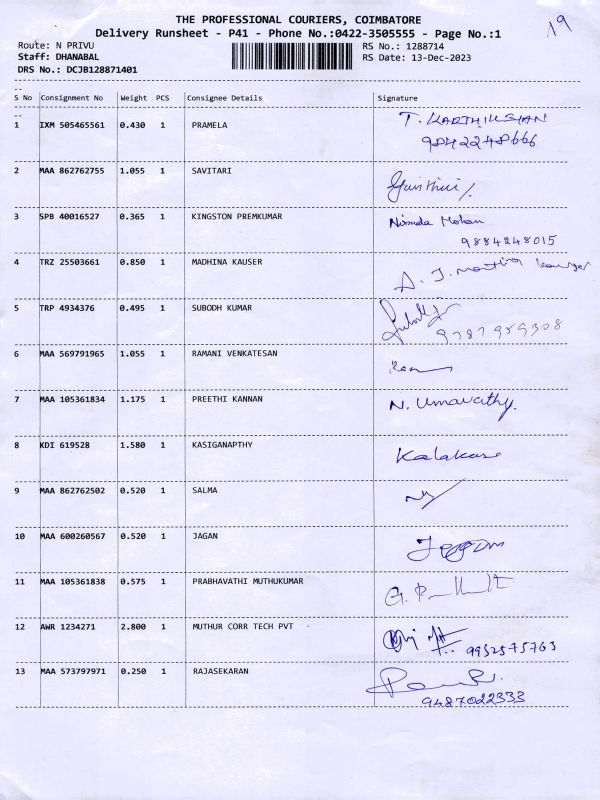 19
THE PROFESSIONAL COURIERS, COIMBATORE
Delivery Runsheet - P41 - Phone No.:0422-3505555 - Page No.:1
Route: N PRIVU RS No.: 1288714
Staff: DHANABAL RS Date: 13-Dec-2023
DRS No.: DCJB128871401
S No Consignment No Weight PCS Consignee Details Signature
1 IXM 505465561 0.430 1 PRAMELA T. KARTHIKEYAN
9842248666
2 MAA 862762755 1.055 1 SAVITARI
3 SPB 40016527 0.365 1 KINGSTON PREMKUMAR Nirmala Mohan
9884248015
4 TRZ 25503661 0.850 1 MADHINA KAUSER
5 TRP 4934376 0.495 1 SUBODH KUMAR
9787959308
6 MAA 569791965 1.055 1 RAMANI VENKATESAN
7 MAA 105361834 1.175 1 PREETHI KANNAN N. Umavathy.
8 KDI 619528 1.580 1 KASIGANAPTHY
9 MAA 862762502 0.520 1 SALMA
10 MAA 600260567 0.520 1 JAGAN Jagan
11 MAA 105361838 0.575 1 PRABHAVATHI MUTHUKUMAR
12 AWR 1234271 2.800 1 MUTHUR CORR TECH PVT 9952575763
13 MAA 573797971 0.250 1 RAJASEKARAN
9487022333